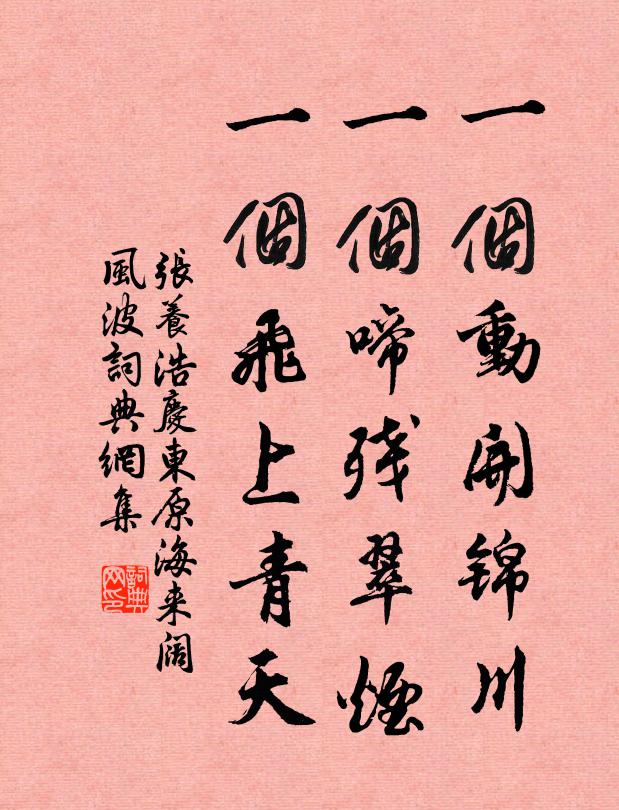 一個動開錦川
一個啼残翠煙
一個飛上青天
張養浩慶東原海来阔
風波詞典網集
詞典网印